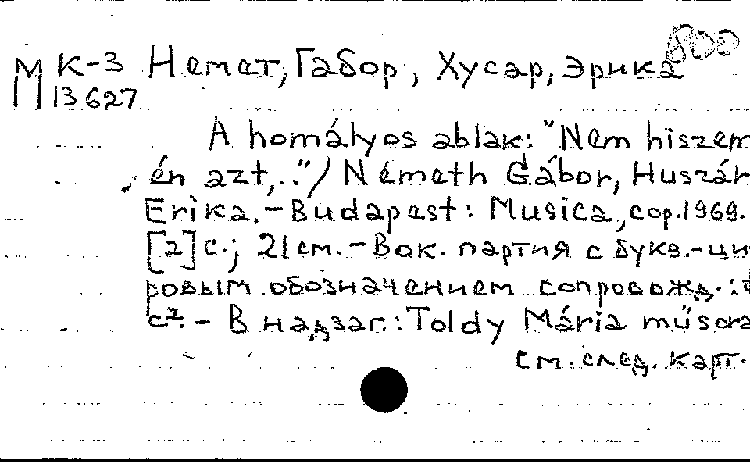 800
М К-3 Немет, Габор, Хусар, Эрика
13627
A homályos ablak: "Nem hiszem
én azt,.."/ Németh Gábor, Huszár
Erika.-Budapest: Musica, cop.1969.
[2]с.; 21см.-Вок. партия с букв.-ци
ровым обозначением сопровожд.:
c².- В надзаг.: Toldy Mária műsora
см. след. карт.